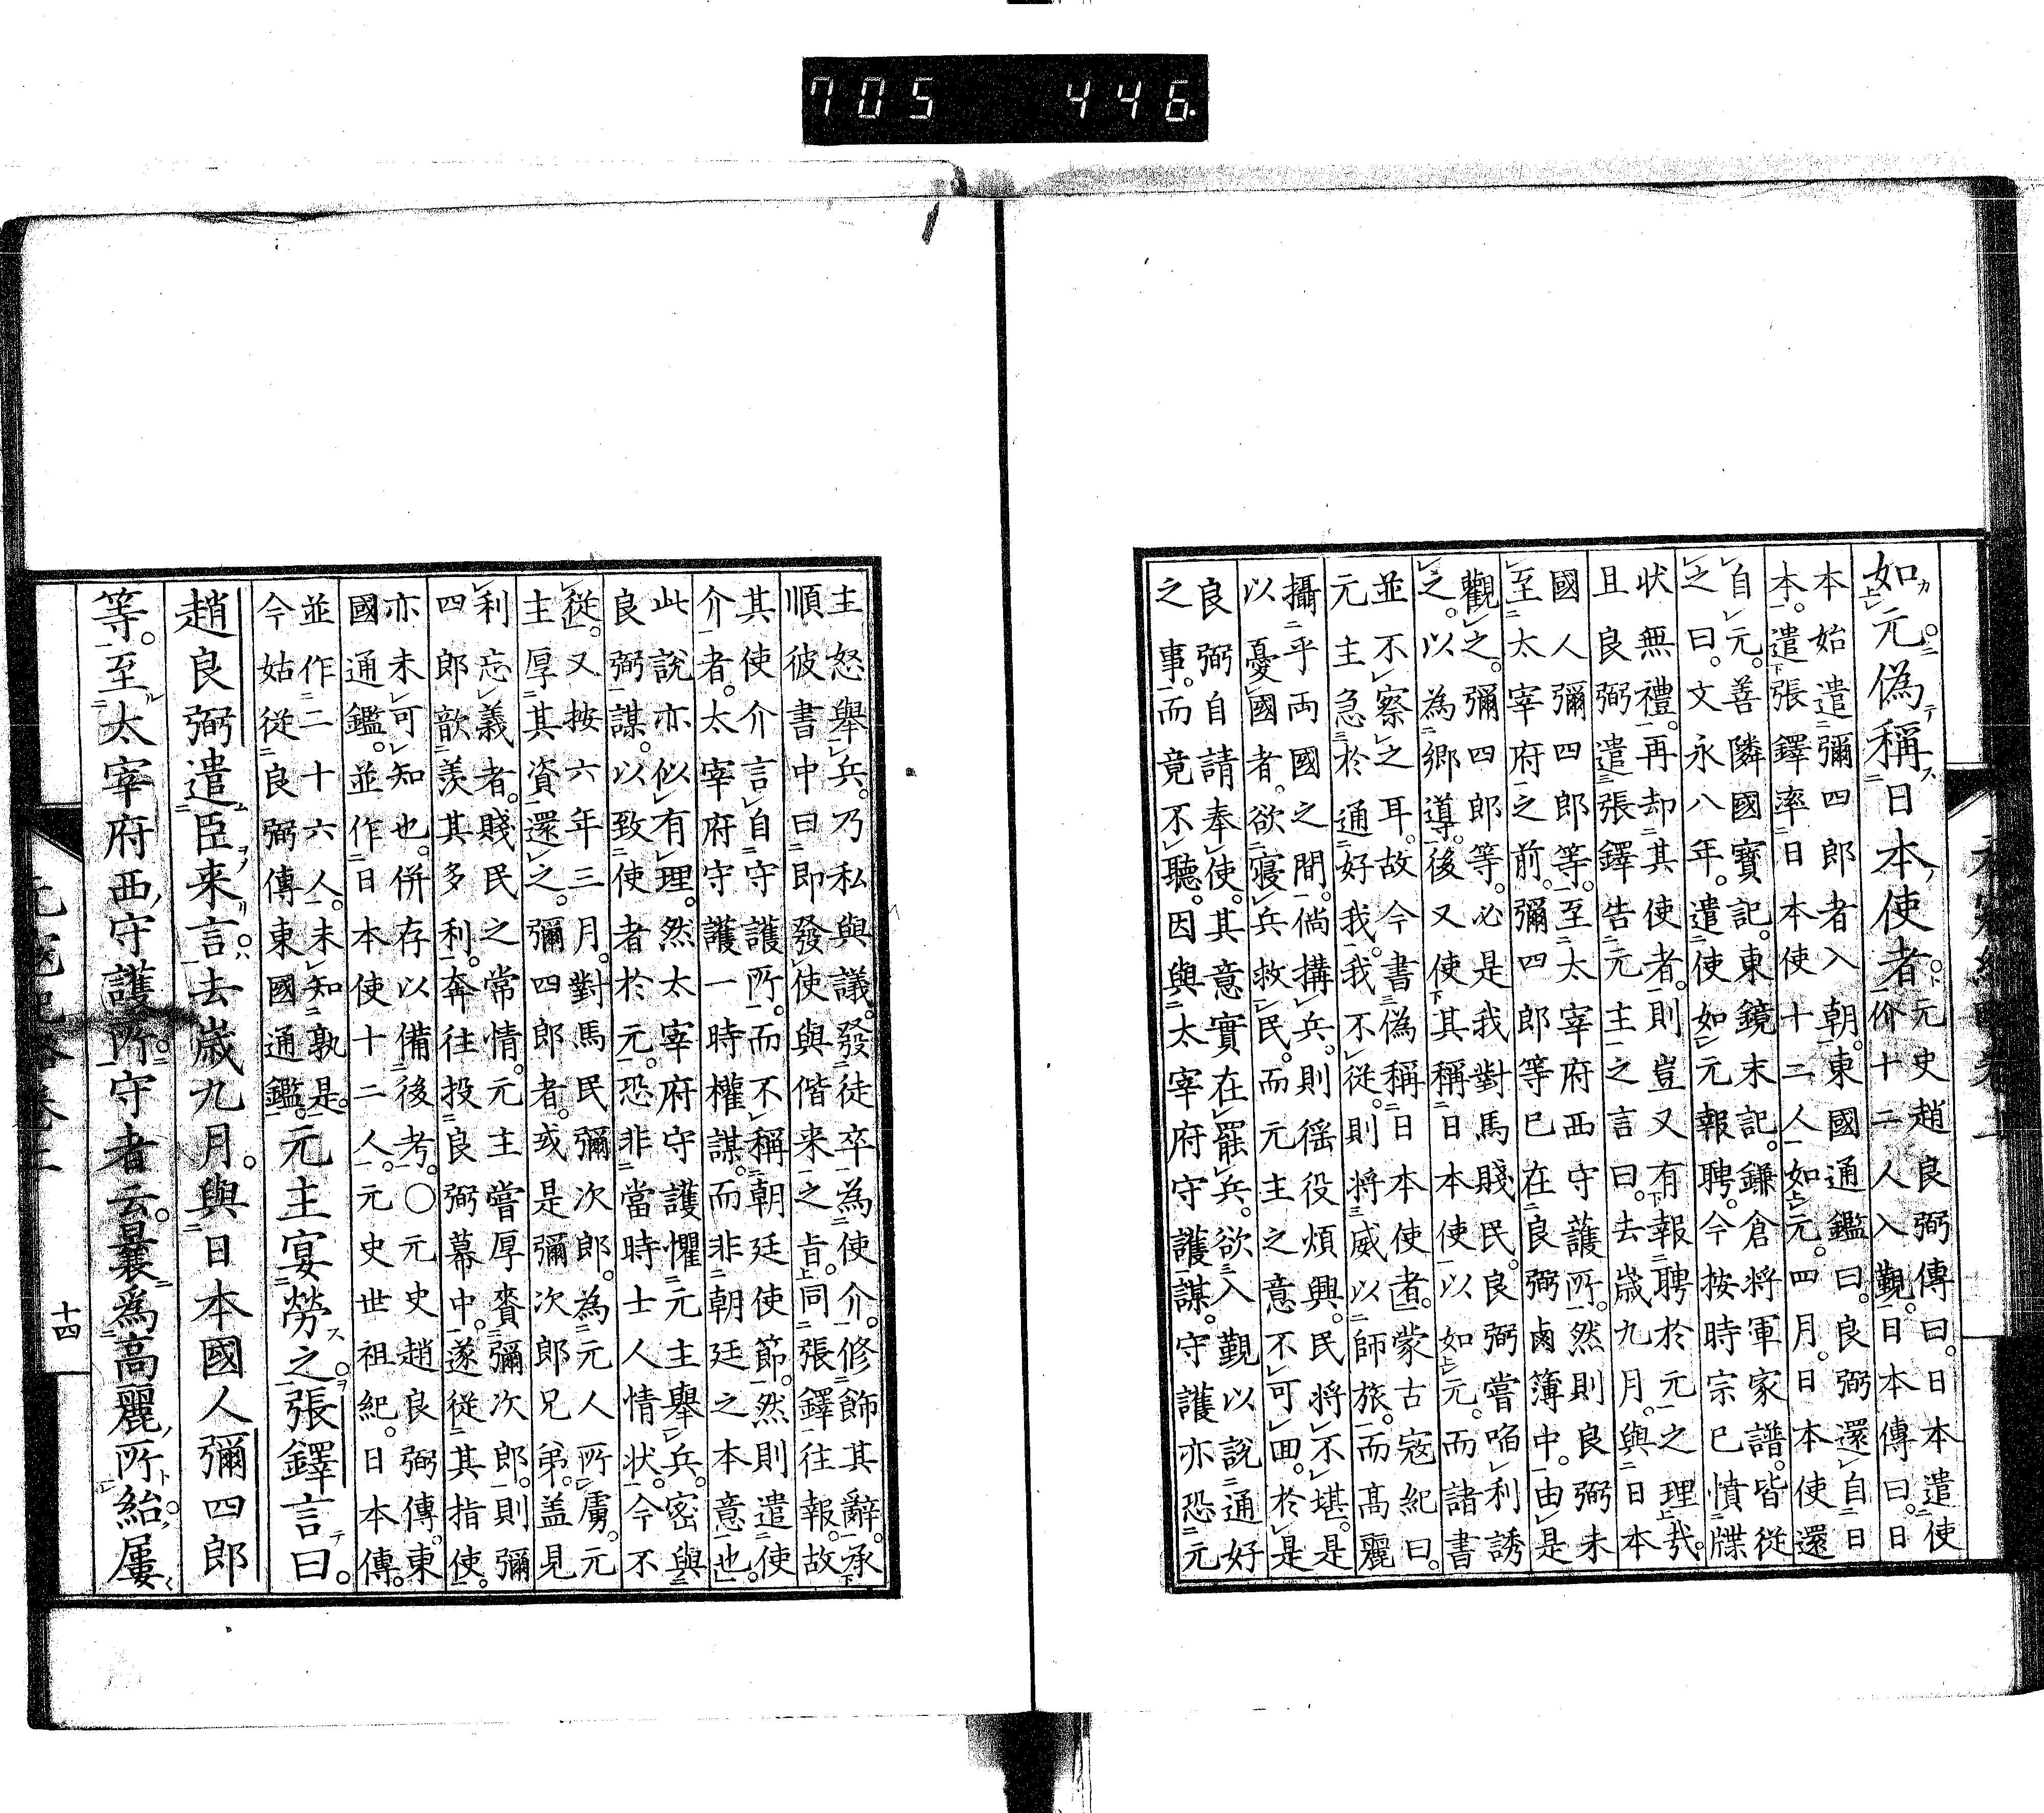 705 446
如元偽稱日本使者
元史趙良弼傳曰。日本遣使
价十二人入覲。日本傳曰。日
本始遣彌四郎者入朝。東國通鑑曰。良弼還自日
本。遣張鐸率日本使十二人如元。四月。日本使還
自元。善隣國寶記。東鏡末記。鎌倉將軍家譜。皆從
之曰。文永八年。遣使如元報聘。今按時宗已憤牒
状無禮。再却其使者。則豈又有報聘於元之理哉。
且良弼遣張鐸告元主之言曰。去歲九月。與日本
國人彌四郎等。至太宰府西守護所。然則良弼未
至太宰府之前。彌四郎等已在良弼鹵簿中。由是
觀之。彌四郎等。必是我對馬賤民。良弼嘗啗利誘
之。以為鄉導。後又使其稱日本使以如元。而諸書
並不察之耳。故今書偽稱日本使者。蒙古寇紀曰。
元主急於通好我。我不從。則將威以師旅。而高麗
攝乎兩國之間。倘搆兵。則徭役煩興。民將不堪。是
以憂國者。欲寢兵救民。而元主之意不可回。於是
良弼自請奉使。其意實在罷兵。欲入覲以說通好
之事。而竟不聽。因與太宰府守護謀。守護亦恐元
主怒舉兵。乃私與議。發徒卒為使介。修飾其辭。承
順彼書中曰即發使與偕来之旨。同張鐸往報。故
其使介言自守護所。而不稱朝廷使節。然則遣使
介者。太宰府守護一時權謀。而非朝廷之本意也。
此說亦似有理。然太宰府守護懼元主舉兵。密與
良弼謀。以致使者於元。恐非當時士人情状。今不
從。又按六年三月。對馬民彌次郎。為元人所虜。元
主厚其資還之。彌四郎者。或是彌次郎兄弟。盖見
利忘義者。賤民之常情。元主嘗厚賚彌次郎。則彌
四郎歆羨其多利。奔往投良弼幕中。遂從其指使。
亦未可知也。併存以備後考。〇元史趙良弼傳。東
國通鑑。並作日本使十二人。元史世祖紀。日本傳。
並作二十六人。未知孰是。
今姑從良弼傳東國通鑑。
元主宴勞之。張鐸言曰。
趙良弼遣臣来言。去歲九月。與日本國人彌四郎
等。至太宰府西守護所。守者云。曩為高麗所紿。屢
十四